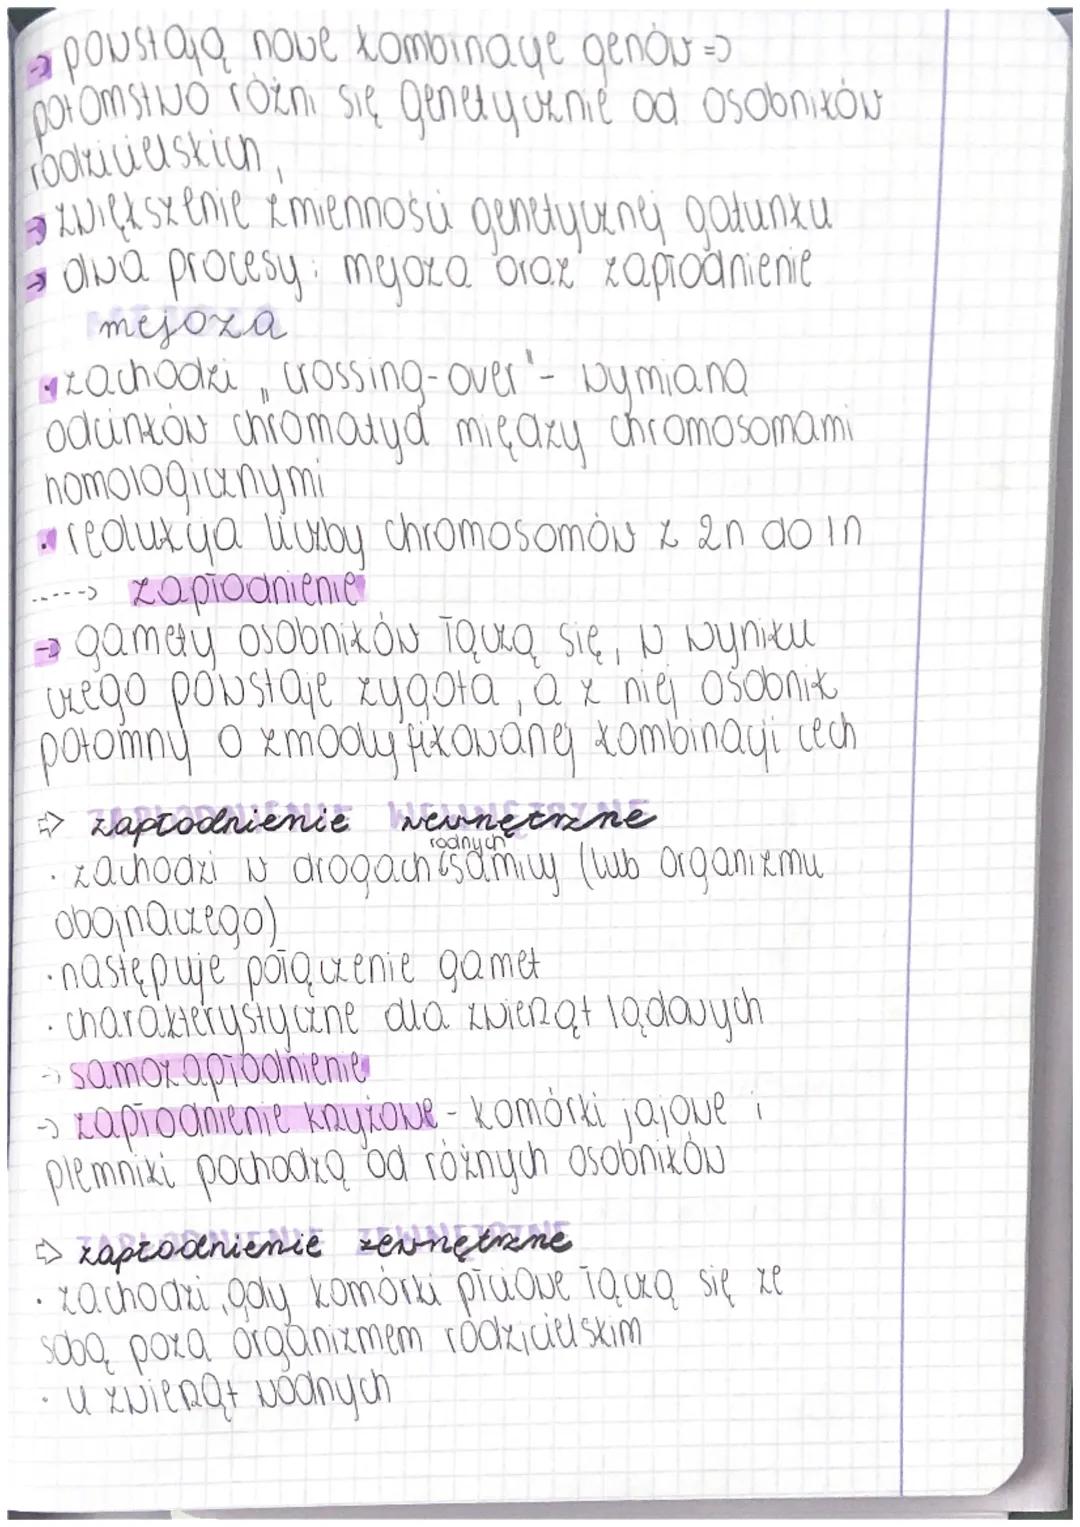 → powstają nowe kombinacje genów =>
potomstwo różni się genetycznie od osobników
rodzicielskich,
→ zwiększenie zmienności genetycznej gatunku
→ dwa procesy: mejoza oraz zapłodnienie
mejoza
• zachodzi „crossing-over" - wymiana
odcinków chromatyd między chromosomami
homologicznymi
• redukcja liczby chromosomów z 2n do 1n
-----> zapłodnienie
→ gamety osobników łączą się, w wyniku
czego powstaje zygota, a z niej osobnik
potomny o zmodyfikowanej kombinacji cech
⇒ zapłodnienie wewnętrzne
• zachodzi w drogach rodnych samicy (lub organizmu
obojnaczego)
• następuje połączenie gamet
• charakterystyczne dla zwierząt lądowych
→ samozapłodnienie
→ zapłodnienie krzyżowe - komórki jajowe i
plemniki pochodzą od różnych osobników
⇒ zapłodnienie zewnętrzne
• zachodzi, gdy komórki płciowe łączą się ze
sobą poza organizmem rodzicielskim
• u zwierząt wodnych